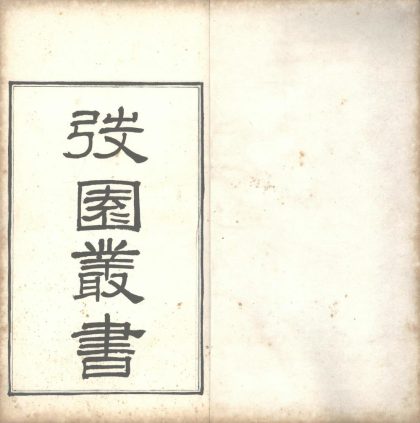 弢園叢書